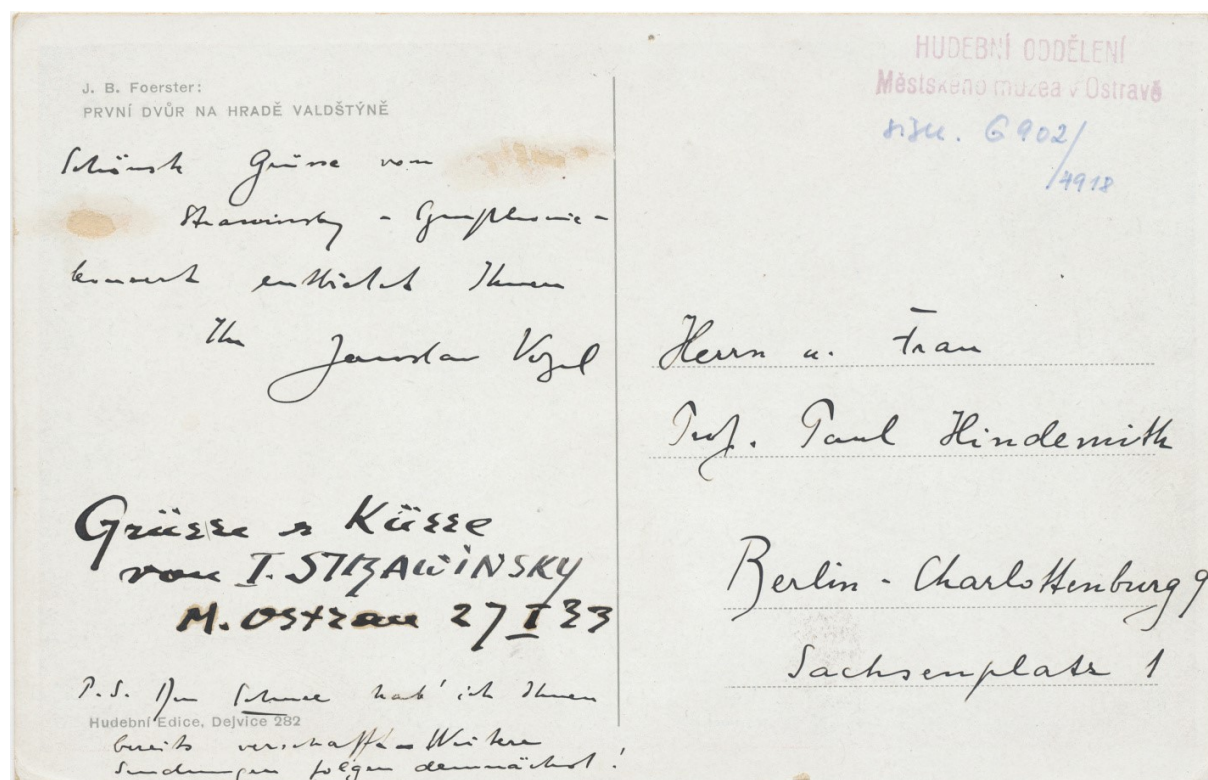 J. B. Foerster:
PRVNÍ DVŮR NA HRADĚ VALDŠTÝNĚ
Schönste Grüsse vom
Strawinsky - Symphonie-
konzert entbietet Ihnen
Ihr Jaroslav Vogel
Grüsse u Küsse
von I. STRAWINSKY
M. Ostrau 27 I 33
P.S. hab' ich Ihnen
Hudební Edice, Dejvice 282
bereits verschafft – Weitere
Sendungen folgen demnächst!
HUDEBNÍ ODDĚLENÍ
Městského muzea v Ostravě
G 902/
4918
Herrn u. Frau
Prof. Paul Hindemith
Berlin - Charlottenburg 9
Sachsenplatz 1